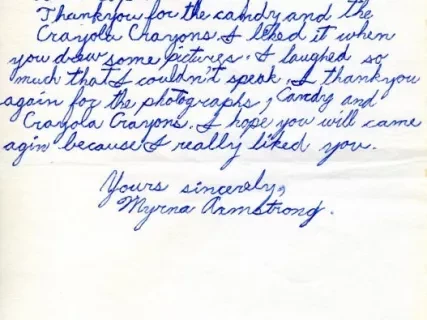 Thankyou for the candy and the
Crayola Crayons. I liked it when
you drew some pictures. I laughed so
much that I couldn't speak. I thankyou
again for the photographs, Candy and
Crayola Crayons. I hope you will came
agin because I really liked you.
Yours sincerely,
Myrna Armstrong.